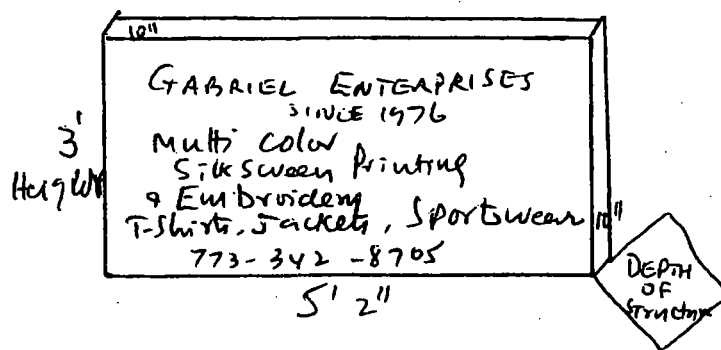 10"
GABRIEL ENTERPRISES
SINCE 1976
3'
Height
Multi Color
Silkscreen Printing
& Embroidery
T-Shirts, Jackets, Sportswear
10"
773-342-8705
5' 2"
DEPTH
OF
Structure